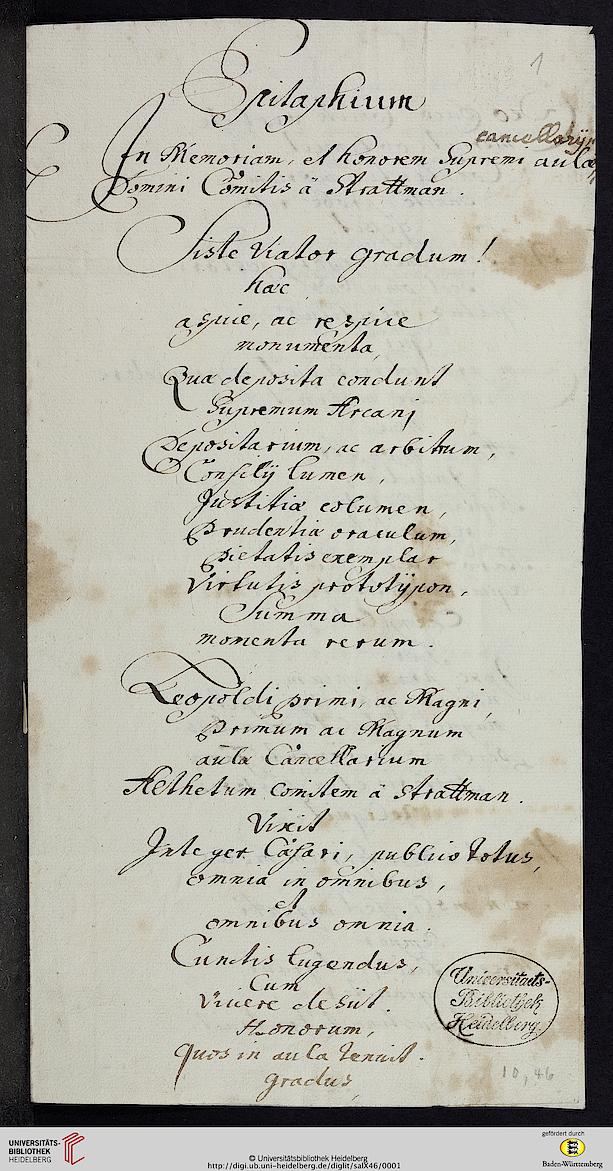 1
Epitaphium
cancellarij
In Memoriam, et honorem Supremi aulæ
Domini Comitis à Strattman.
Siste Viator gradum!
hæc
aspice, ac respice
monumenta,
Quæ deposita condunt
Supremum Arcani
Depositarium, ac arbitrum,
Consilij lumen,
Justitiæ columen,
Prudentiæ oraculum,
Pietatis exemplar
Virtutis prototijpon,
Summa
momenta rerum.
Leopoldi primi, ac Magni,
Primum ac Magnum
aulæ Cancellarium
Aethetum Comitem à Strattman.
Vixit
Integer Cæsari, publico totus,
omnia in omnibus,
et
omnibus omnia.
Cunctis lugendus,
Cum
Vivere desiit.
Honorum,
quos in aula tenuit.
gradus,
Universitaets-
Bibliothek
Heidelberg
10,46
UNIVERSITÄTS-
BIBLIOTHEK
HEIDELBERG
© Universitätsbibliothek Heidelberg
http://digi.ub.uni-heidelberg.de/diglit/salX46/0001
gefördert durch
Baden-Württemberg